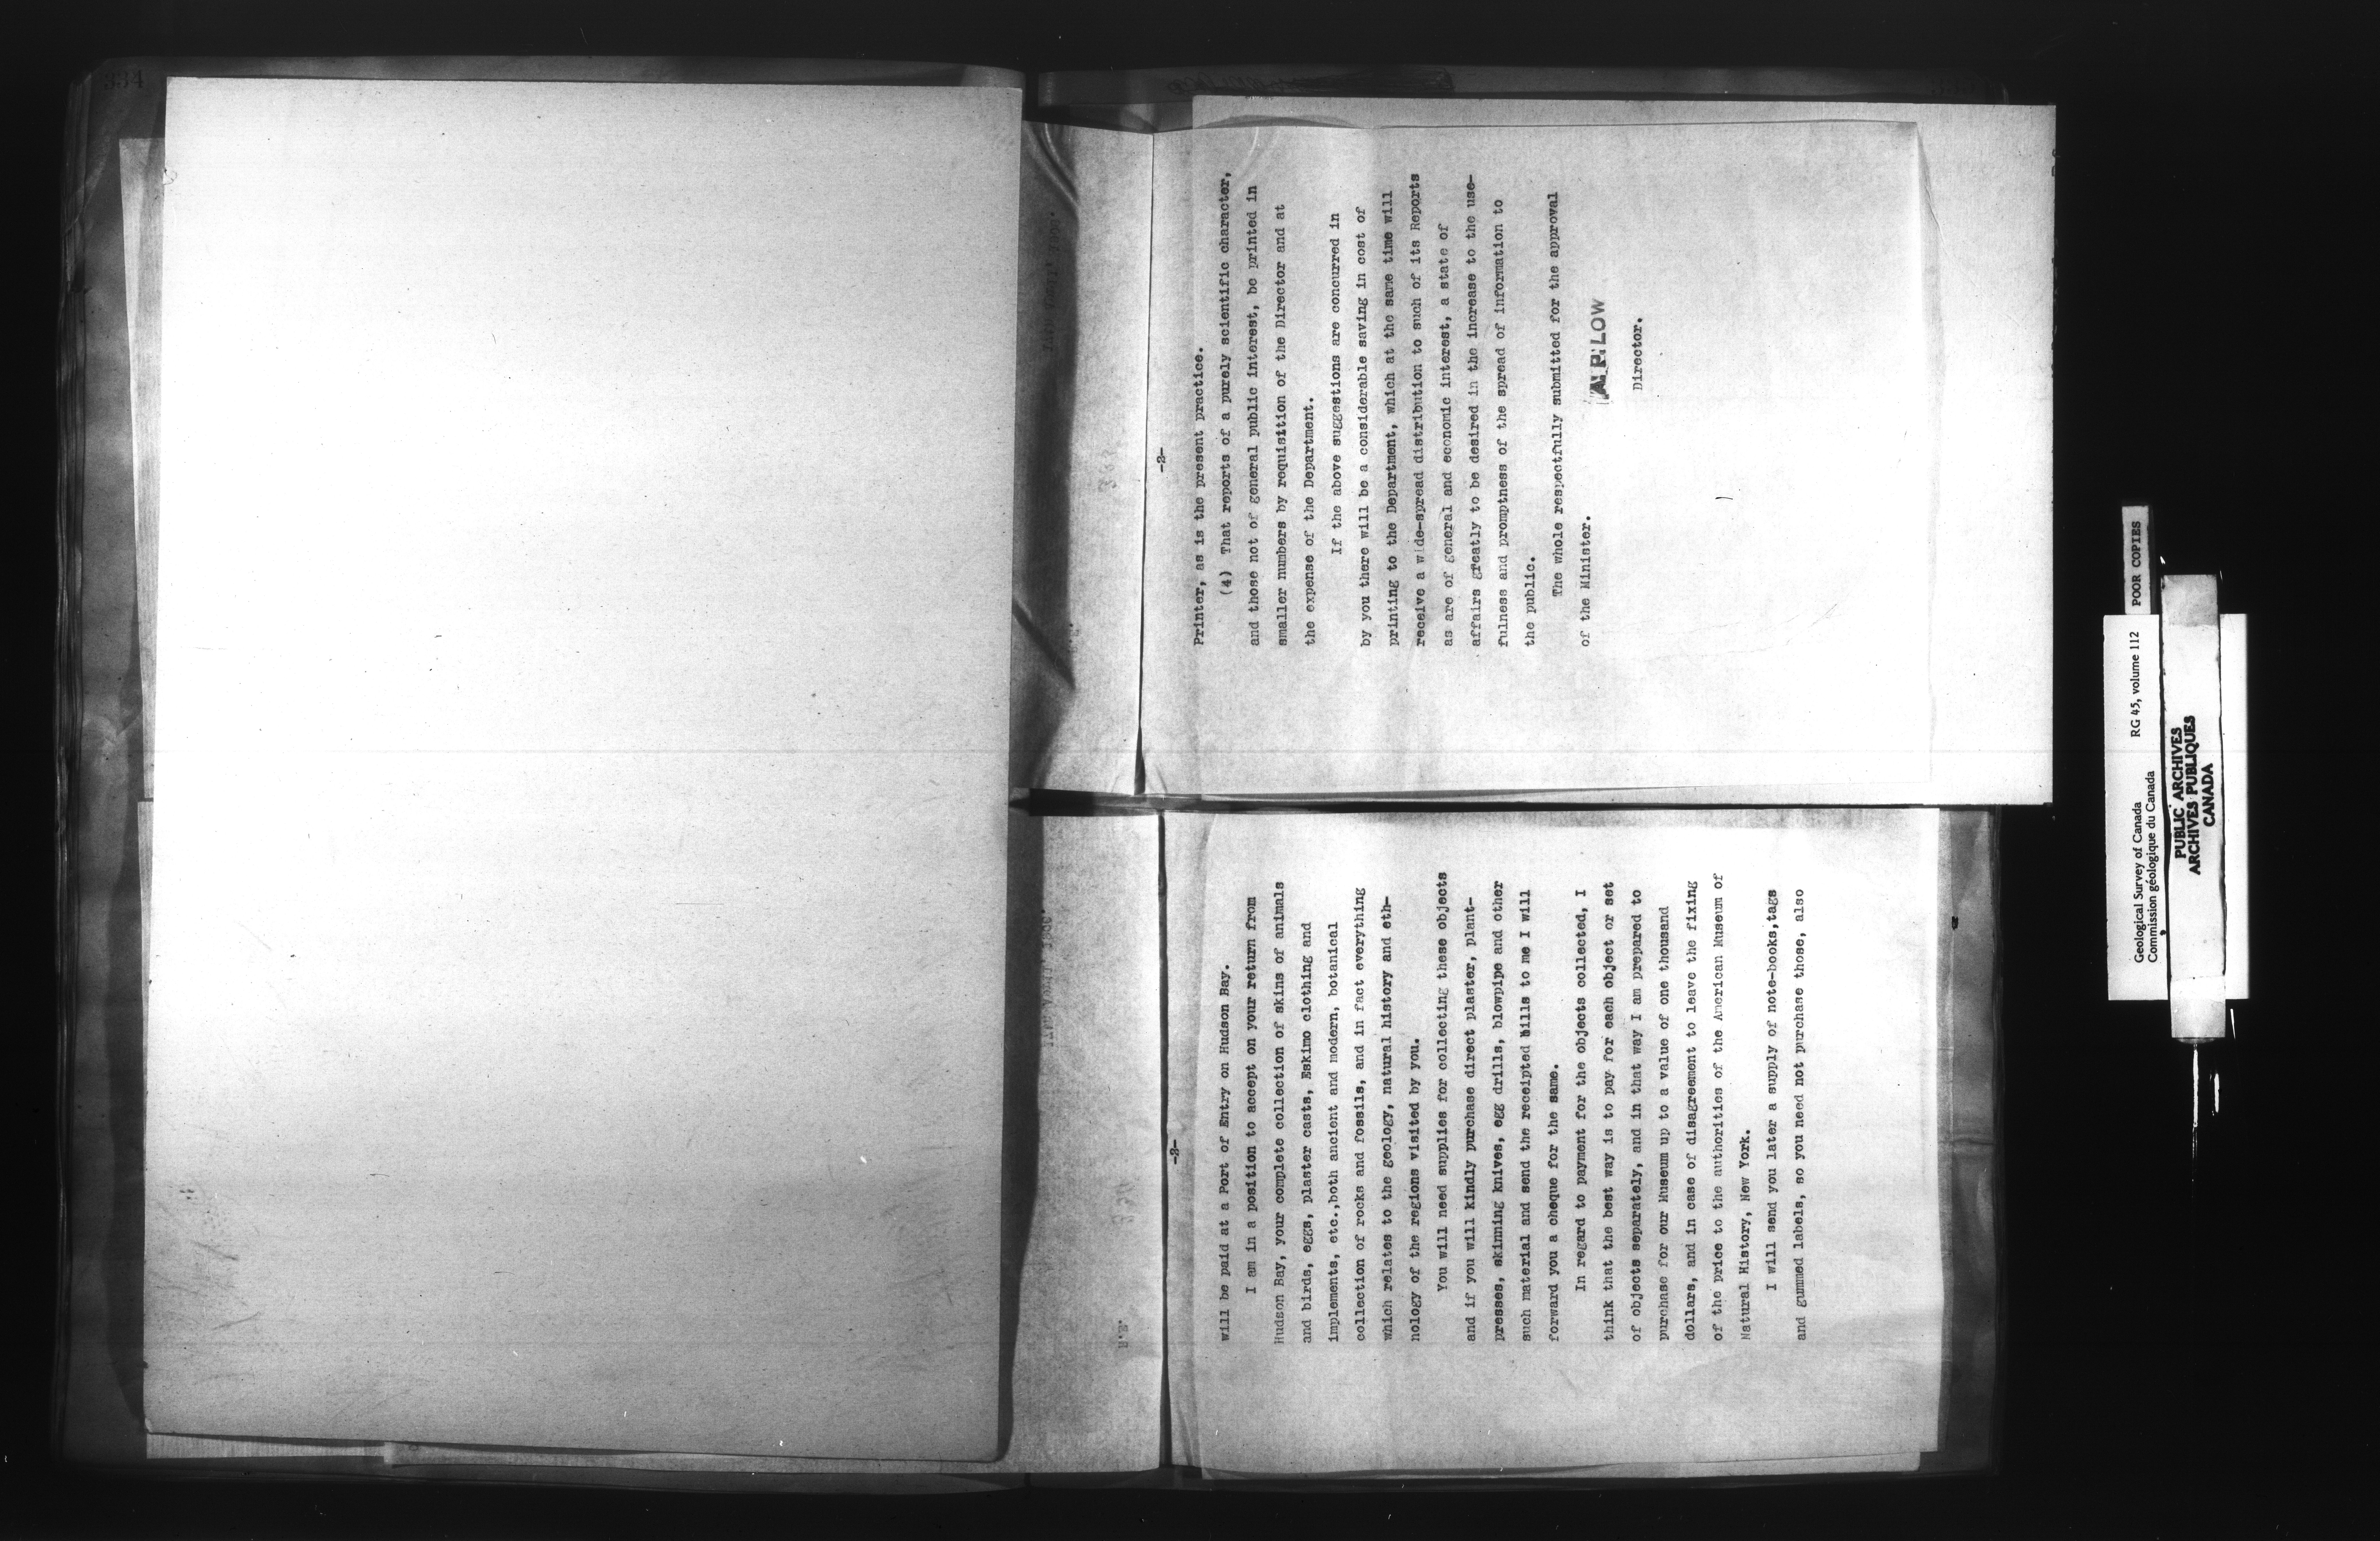 334
-2-
Printer, as is the present practice.
(4) That reports of a purely scientific character,
and those not of general public interest, be printed in
smaller numbers by requisition of the Director and at
the expense of the Department.
If the above suggestions are concurred in
by you there will be a considerable saving in cost of
printing to the Department, which at the same time will
receive a wide-spread distribution to such of its Reports
as are of general and economic interest, a state of
affairs greatly to be desired in the increase to the use-
fulness and promptness of the spread of information to
the public.
The whole respectfully submitted for the approval
of the Minister.
A. P. LOW
Director.
-2-
will be paid at a Port of Entry on Hudson Bay.
I am in a position to accept on your return from
Hudson Bay, your complete collection of skins of animals
and birds, eggs, plaster casts, Eskimo clothing and
implements, etc.,both ancient and modern, botanical
collection of rocks and fossils, and in fact everything
which relates to the geology, natural history and eth-
nology of the regions visited by you.
You will need supplies for collecting these objects
and if you will kindly purchase direct plaster, plant-
presses, skinning knives, egg drills, blowpipe and other
such material and send the receipted bills to me I will
forward you a cheque for the same.
In regard to payment for the objects collected, I
think that the best way is to pay for each object or set
of objects separately, and in that way I am prepared to
purchase for our Museum up to a value of one thousand
dollars, and in case of disagreement to leave the fixing
of the price to the authorities of the American Museum of
Natural History, New York.
I will send you later a supply of note-books,tags
and gummed labels, so you need not purchase those, also
Geological Survey of Canada RG 45, volume 112 POOR COPIES
Commission géologique du Canada
PUBLIC ARCHIVES
ARCHIVES PUBLIQUES
CANADA